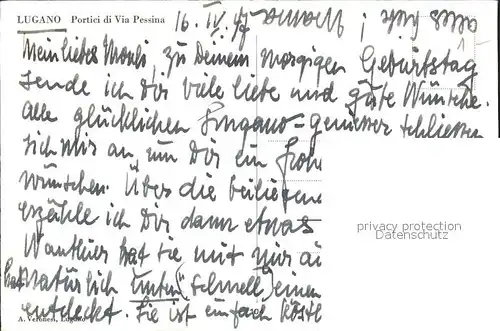 LUGANO Portici di Via Pessina
16. IV. 47
Mein liebes Mouli, zu Deinem morgigen Geburtstag
sende ich Dir viele liebe und gute Wünsche.
Alle glücklichen Lugano-geniesser schliessen
sich mir an, um Dir ein Froh
wünschen. Über die beiliegene
erzähle ich Dir dann etwas
hat sie mit mir
hat natürlich unten schnell einen
entdeckt. Sie ist einfach köstl
A. Veronesi, Lugano
privacy protection
Datenschutz